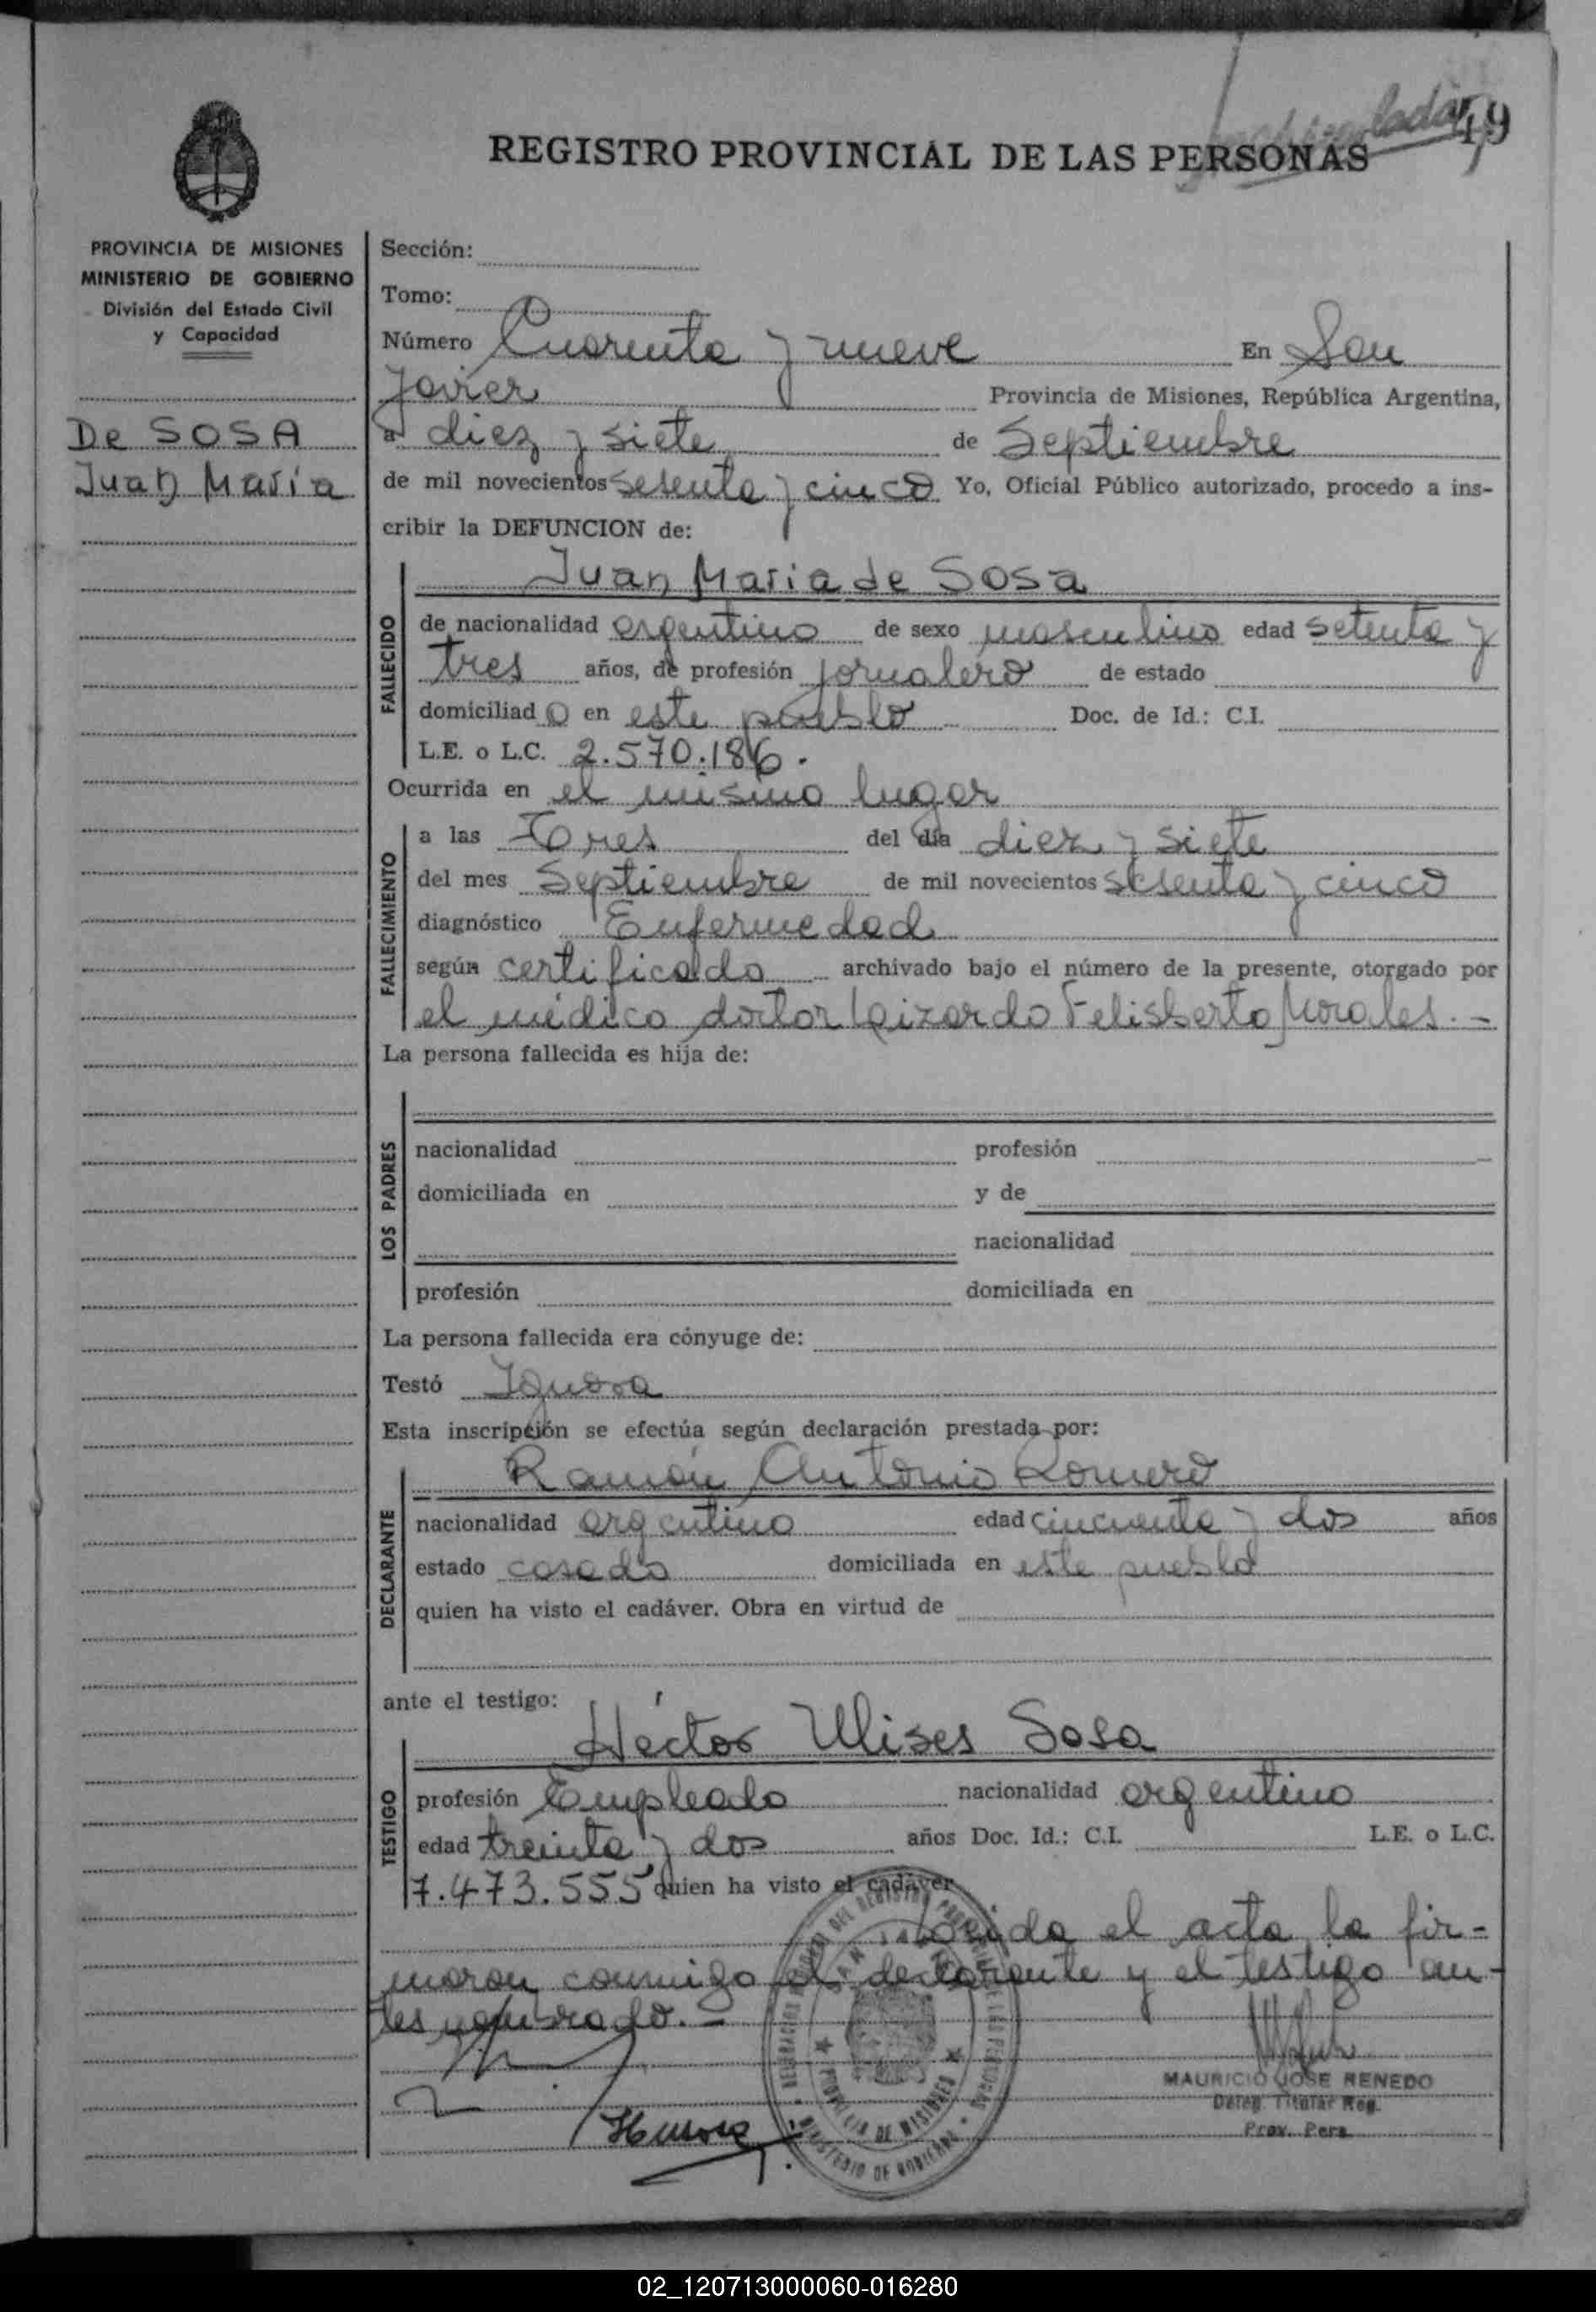 49
REGISTRO PROVINCIAL DE LAS PERSONAS
PROVINCIA DE MISIONES
MINISTERIO DE GOBIERNO
División del Estado Civil
y Capacidad
De SOSA
Juan María
Sección:
Tomo:
Número Cuarenta y nueve En San
Javier Provincia de Misiones, República Argentina,
a diez y siete de Septiembre
de mil novecientos sesenta y cinco Yo, Oficial Público autorizado, procedo a ins-
cribir la DEFUNCION de:
FALLECIDO
Juan Maria de Sosa
de nacionalidad argentino de sexo masculino edad setenta y
tres años, de profesión jornalero de estado
domiciliado en este pueblo Doc. de Id.: C.I.
L.E. o L.C. 2.570.186.
Ocurrida en el mismo lugar
FALLECIMIENTO
a las tres del día diez y siete
del mes Septiembre de mil novecientos sesenta y cinco
diagnóstico Enfermedad
según certificado archivado bajo el número de la presente, otorgado por
el médico doctor Felisberto Morales.-
La persona fallecida es hija de:
LOS PADRES
nacionalidad profesión
domiciliada en y de
nacionalidad
profesión domiciliada en
La persona fallecida era cónyuge de:
Testó Ignora
Esta inscripción se efectúa según declaración prestada por:
DECLARANTE
Ramón Antonio Romero
nacionalidad argentino edad cincuenta y dos años
estado casado domiciliada en este pueblo
quien ha visto el cadáver. Obra en virtud de
ante el testigo:
TESTIGO
Héctor Ulises Sosa
profesión Empleado nacionalidad argentino
edad treinta y dos años Doc. Id.: C.I. L.E. o L.C.
7.473.555 quien ha visto el cadáver
Leída el acta la fir-
maron conmigo el declarante y el testigo an-
tes nombrado.-
MAURICIO JOSE RENEDO
Deleg. Titular Reg.
Prov. Pers.
PROVINCIA DE MISIONES
MINISTERIO DE GOBIERNO
02_120713000060-016280